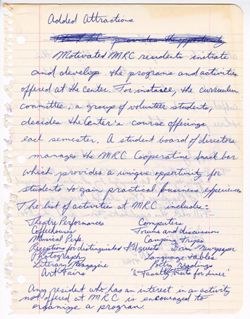 Added Attractions
provides the opportunity
Motivated MRC residents initiate
and develop the programs and activities
offered at the Center. For instance, the curriculum
committee, a group of volunteer students,
decides the Center's course offerings
each semester. A student board of directors
manages the MRC Cooperative snack bar
which provides a unique opportunity for
students to gain practical business experience
The list of activities at MRC includes:
Theatre Performances Computers
Coffeehouses Forums and discussions
Musical Perfs. Camping Trips
Receptions for distinguished guests Dorm Newspaper
Photography Language tables
Literary Magazine Readings
Art Fairs "Faculty Guests for dinner"
Any resident who has an interest in a activity
not offered at MRC is encouraged to
organize a program.